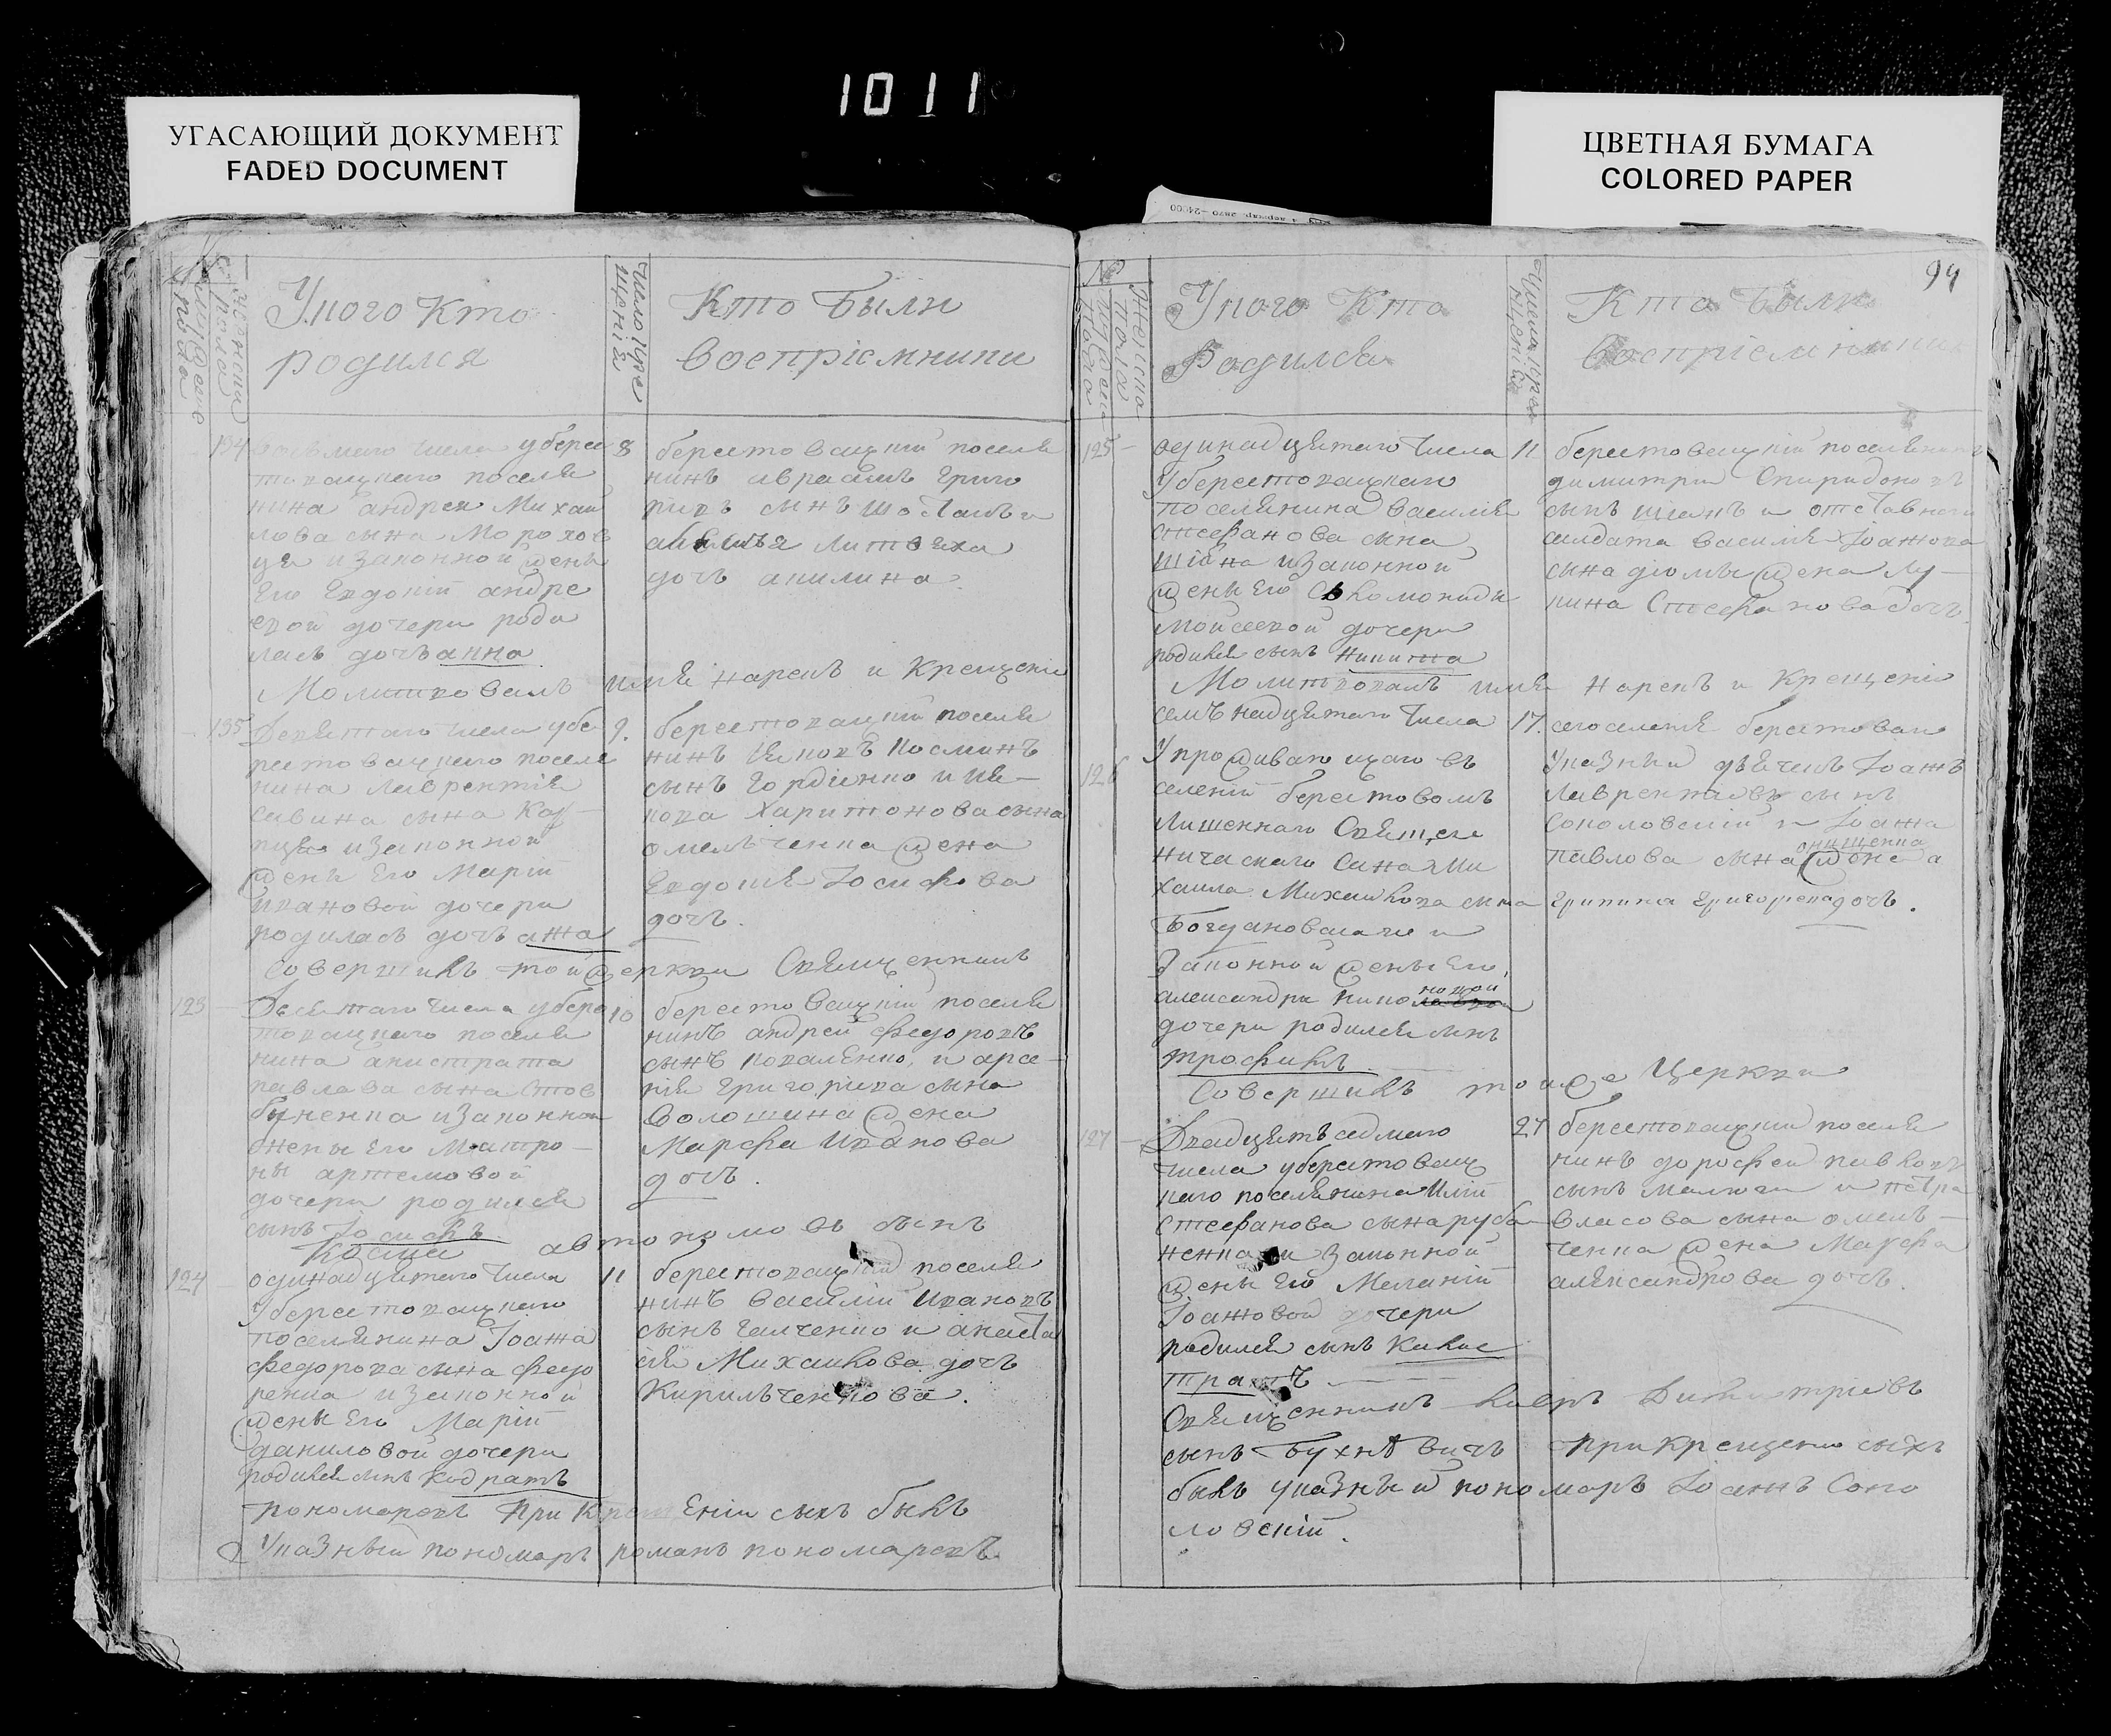 1011
УГАСАЮЩИЙ ДОКУМЕНТ
FADED DOCUMENT
ЦВЕТНАЯ БУМАГА
COLORED PAPER
94
Укого кто
родился
Число кре
щенія
Кто были
воспріемники
134
числа у берес
товацкого поселя
нина андрея Михаи
лова сына Морохов
ца изаконной жены
Его Евдокіи андре
евой дочери роди
лась дочь анна
8
берестовацкій поселя
нинъ авраамъ Григо
ривъ сынъ
литвяка
дочь акилина
Молитвовалъ имя нарекъ и Крещеніе
135
Девятаго числа убе
рестовацкого поселя
нина лаврентія
савина сына
изаконной
жены Его Маріи
ивановой дочери
родилась дочь анна
9.
берестовацкій поселя
нинъ яковъ Косминъ
сынъ Гордіенко и Ия-
кова Харитонова сына
омельченка жена
Евдокия Іосифова
дочь.
Совершилъ тойже церкви Священникъ
123
Десятаго числа у берес
товацкого поселя
нина
павлова сына Стов
буненка изаконной
жены Его Матро-
ны артемовой
дочери родился
сынъ Іосифъ
10
берестовацкій поселя
нинъ андрей федоровъ
сынъ коваленко, и арсе-
нія григорива сына
волошина жена
Марфа Иванова
дочь.
Косма автономовъ сынъ
124
одинадцятаго числа
Уберестовацкого
поселянина Іоанна
федорова сына федо
ренка изаконной
жены Его Маріи
даниловой дочери
родился сынъ Кодратъ
11
берестовацкій поселя
нинъ василій Ивановъ
сынъ галченко и анаста
сія Михаилова дочь
Кирильченкова.
пономаревъ при Крещеніи сихъ былъ
Указный пономарь романъ пономаревъ
Укого Кто
Родился
Кто были
воспріемники
125
одинадцятаго числа
Уберестовацкаго
поселянина василія
стефанова сына
изаконной
жены Его
Моисеевой дочери
родился сынъ Никита
11
берестовацкій поселянинъ
димитри Спиридоновъ
сынъ и отставнаго
салдата василія Іоаннова
сына жена лу-
кина Стефанова дочь.
Молитвовалъ имя Нарекъ и Крещеніе
126
семънадцятаго числа
Упроживающаго въ
селеніи берестовомъ
Лишеннаго Священ
ническаго сана Ми
хаила Михаилова сына
Богдановскаго и
Законной жены Его,
александри Нико новой
дочери родился сынъ
трофимъ
17.
сегоселенія берестоваго
Указный дячекъ Іоаннъ
Лаврентіевъ сынъ
Соколовскій и Іоанна
онищенка
павлова сына жена
грипина григориева дочь.
Совершилъ тоиже Церкви
127
Двадцять седмаго
числа уберестовац
каго поселянина Иліи
стефанова сына руба
ненка и Законной
жены Его Меланіи
Іоанновой дочери
родился сынъ Калис
тратъ
27
берестовацкій поселя
нинъ дорофей павловъ
сынъ малюга и петра
власова сына омель-
ченка жена Марфа
александрова дочь.
Священникъ Димитріевъ
сынъ Бухневичь при крещеніи сихъ
былъ указный пономарь Іоаннъ Соко
ловскій.